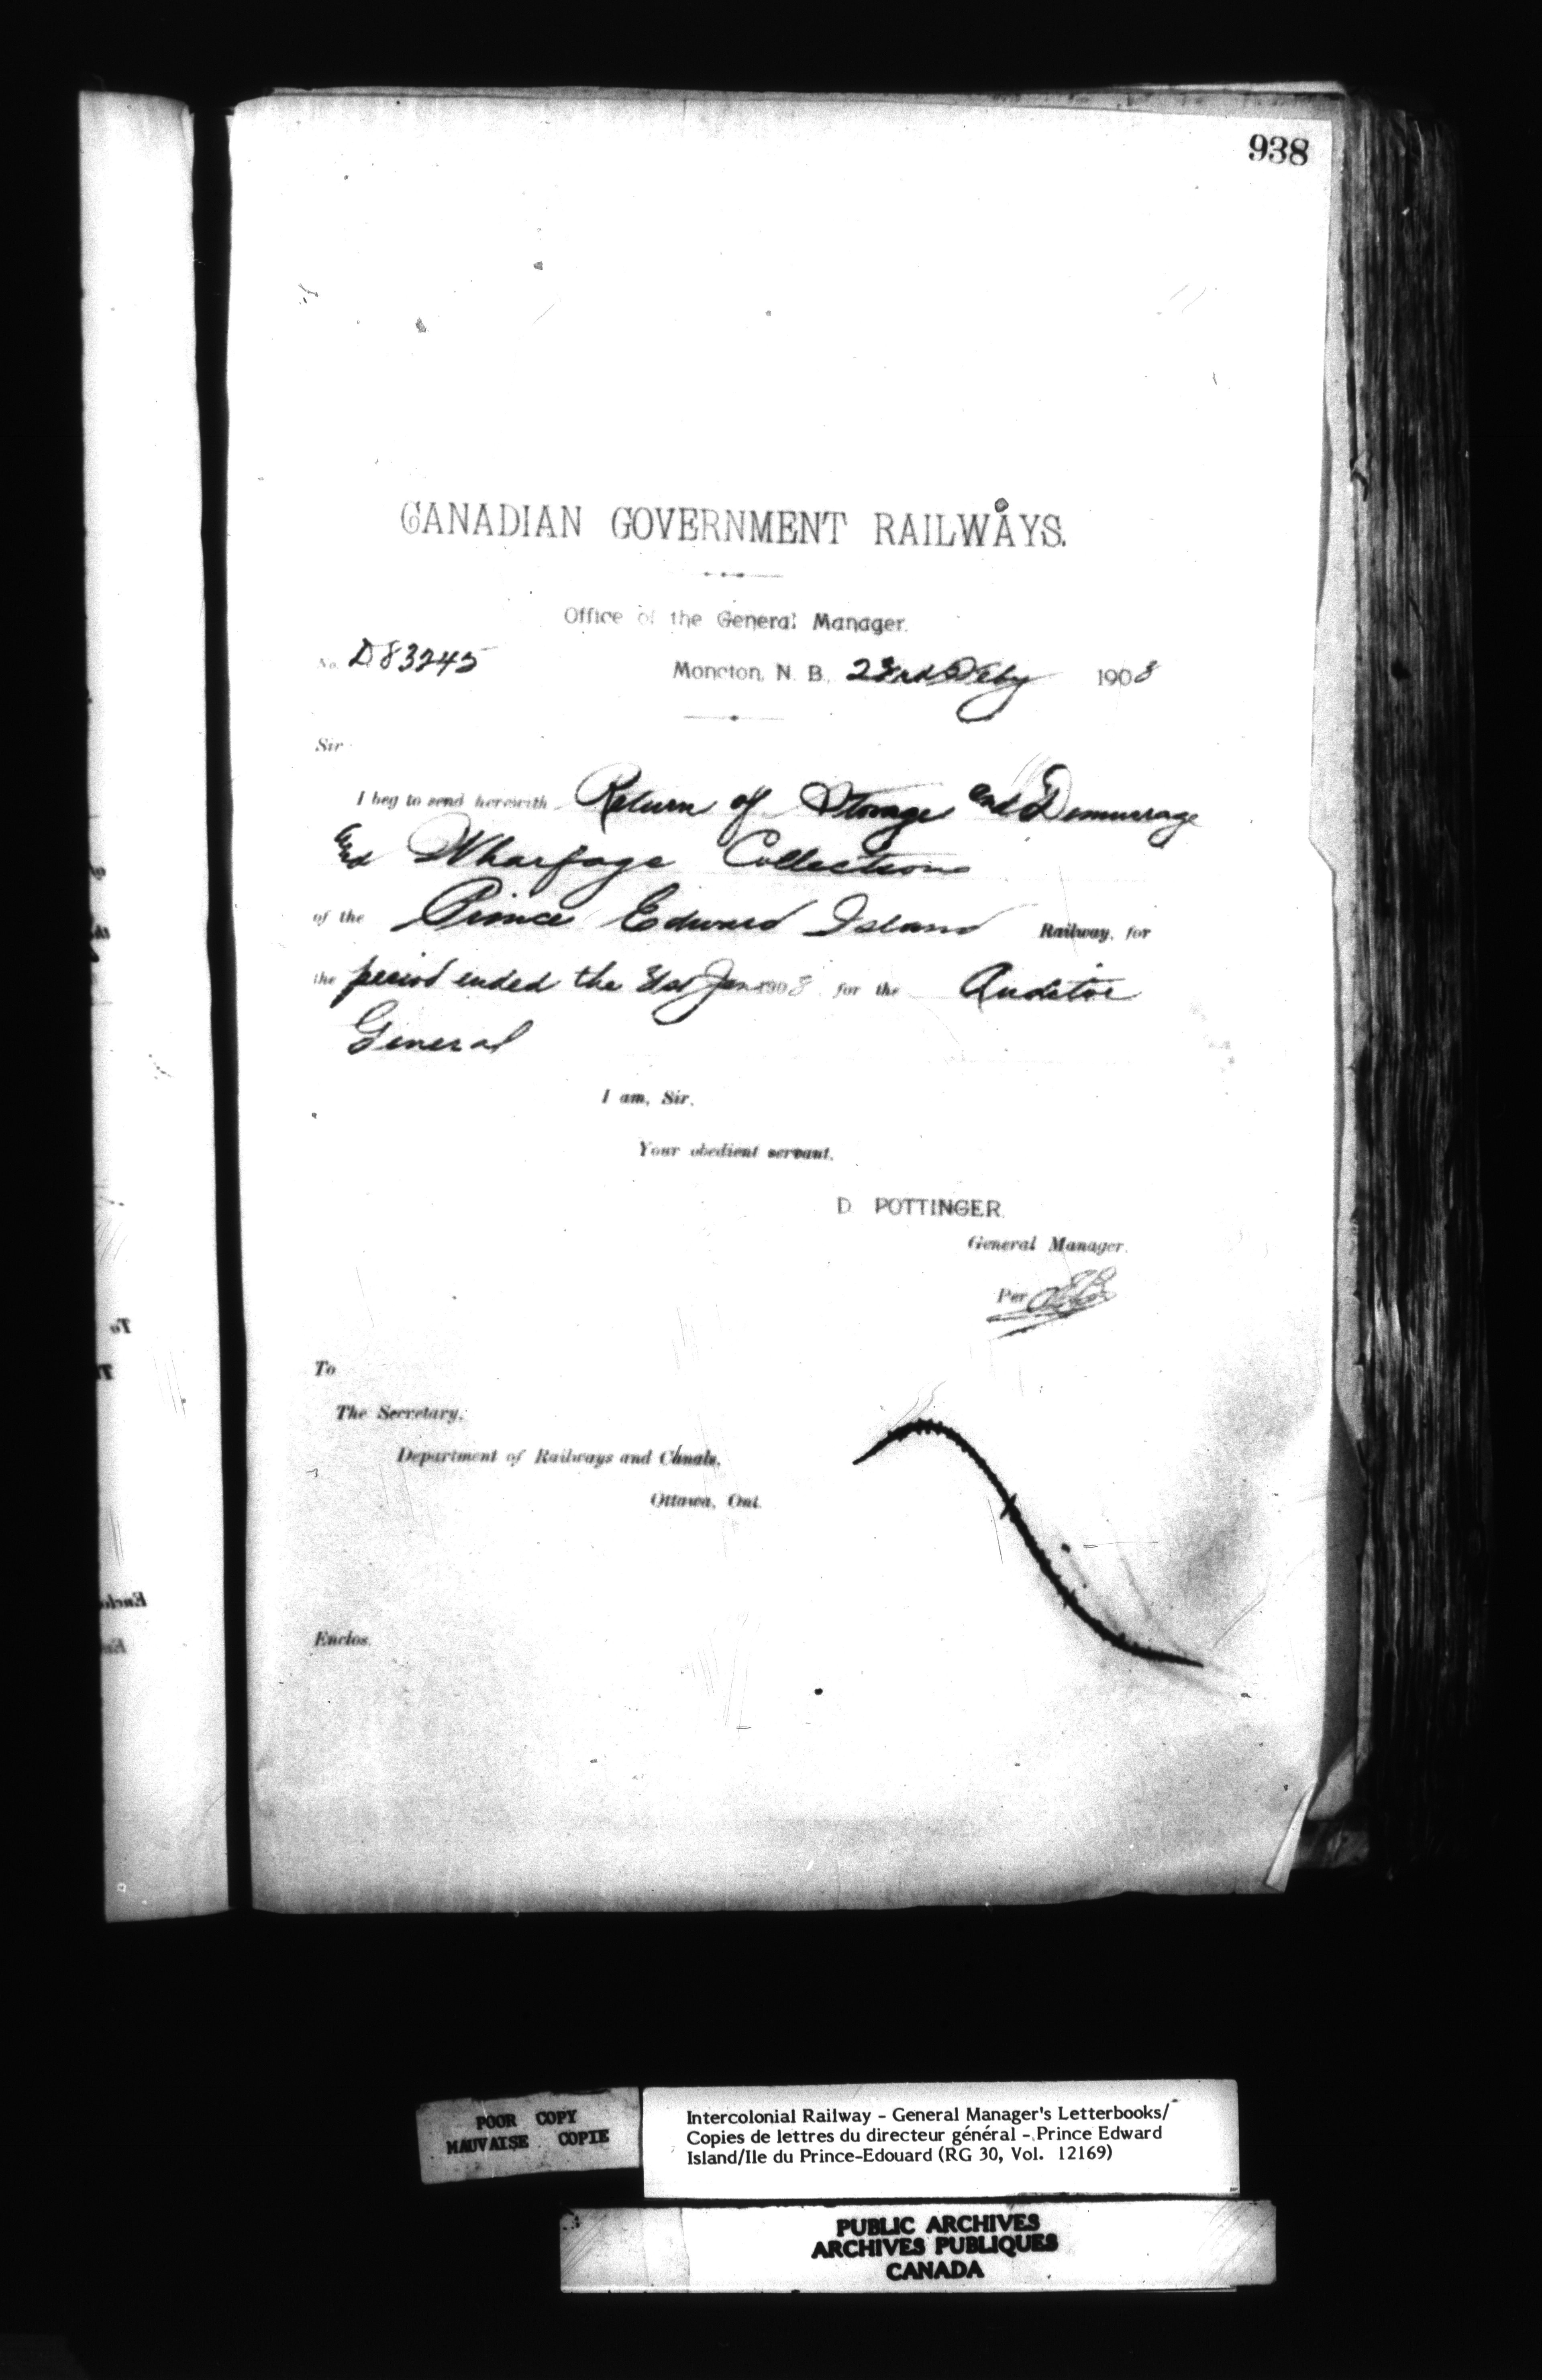 938
CANADIAN GOVERNMENT RAILWAYS.
Office of the General Manager.
No. D83245
Moncton, N. B., 23rd Feby 1903
Sir
I beg to send herewith Return of Storage and Demurrage
and Wharfage Collections
of the Prince Edward Island Railway, for
the period ended the 31st Jan 1903 for the Auditor
General
I am, Sir,
Your obedient servant,
D POTTINGER
General Manager.
Per
To
The Secretary,
Department of Railways and Canals,
Ottawa, Ont.
Enclos.
POOR COPY
MAUVAISE COPIE
Intercolonial Railway - General Manager's Letterbooks/
Copies de lettres du directeur général - Prince Edward
Island/Ile du Prince-Edouard (RG 30, Vol. 12169)
PUBLIC ARCHIVES
ARCHIVES PUBLIQUES
CANADA